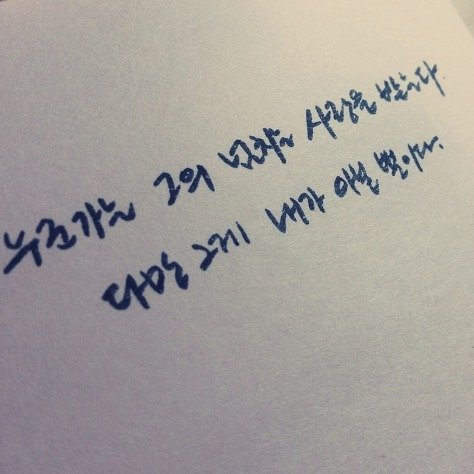 누군가는 그의 사랑을 받는다.
다만 그게 내가 아닐 뿐이다.